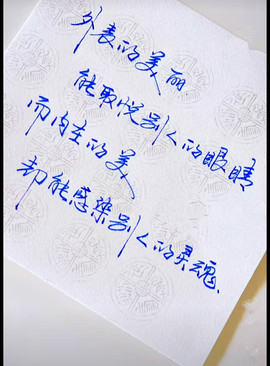 外表的美丽
能取悦别人的眼睛
而内在的美
却能感染别人的灵魂.